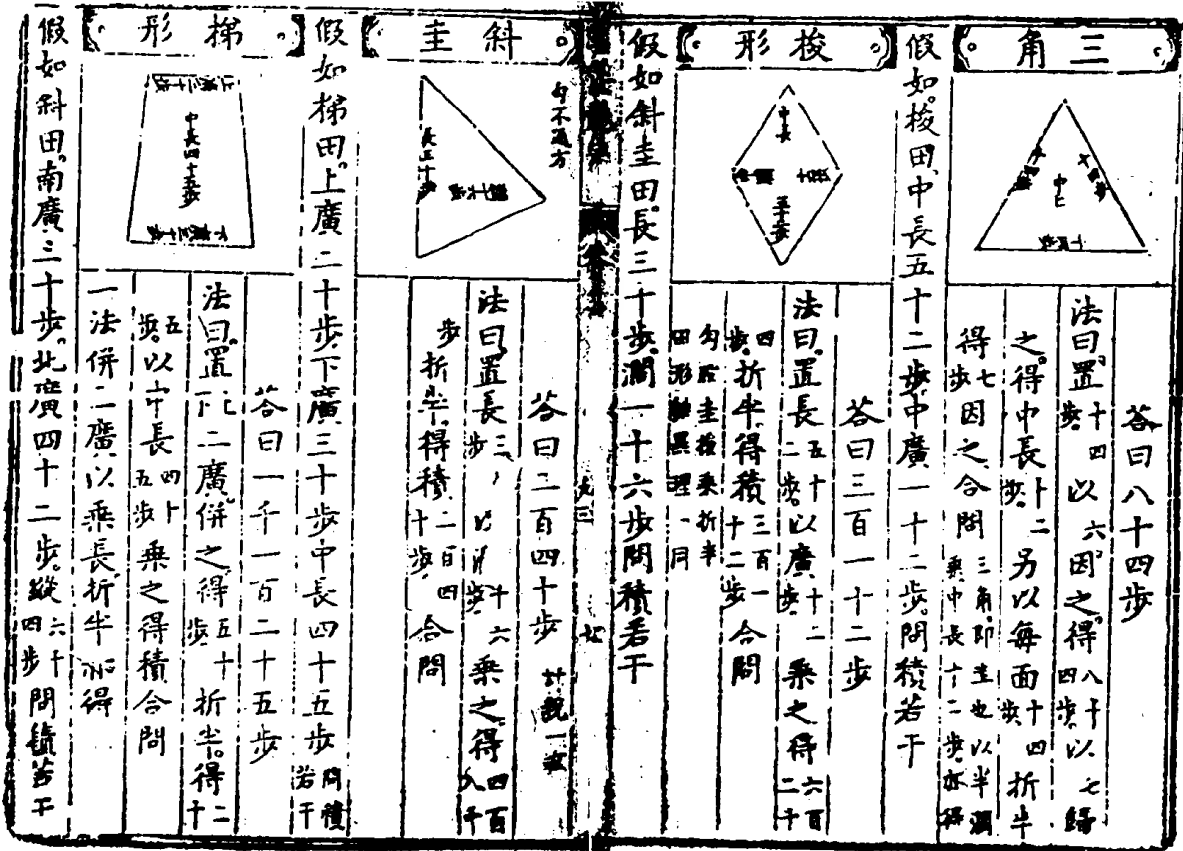 三角
答曰八十四步
法曰置十四步以六因之得八十四步以七歸
之得中長十二步另以每面十四步折半
得七步因之合問三角即圭也以半濶乘中長十二步亦得
假如梭田中長五十二步中廣一十二步問積若干
梭形
中長
五十二步
答曰三百一十二步
法曰置長五十二步以廣十二步乘之得六百二十
四步折半得積三百一十二步合問
勾股圭梭乘折半
田形雖異理一同
假如斜圭田長三十步濶一十六步問積若干
斜圭
勾不通方
長三十步
答曰二百四十步
法曰置長三十步以濶十六步乘之得四百八十
步折半得積二百四十步合問
假如梯田上廣二十步下廣三十步中長四十五步問積若干
梯形
上廣二十步
中長四十五步
下廣三十步
答曰一千一百二十五步
法曰置二廣併之得五十步折半得二十
五步以中長四十五步乘之得積合問
一法併二廣以乘長折半亦得
假如斜田南廣三十步北廣四十二步縱六十四步問積若干